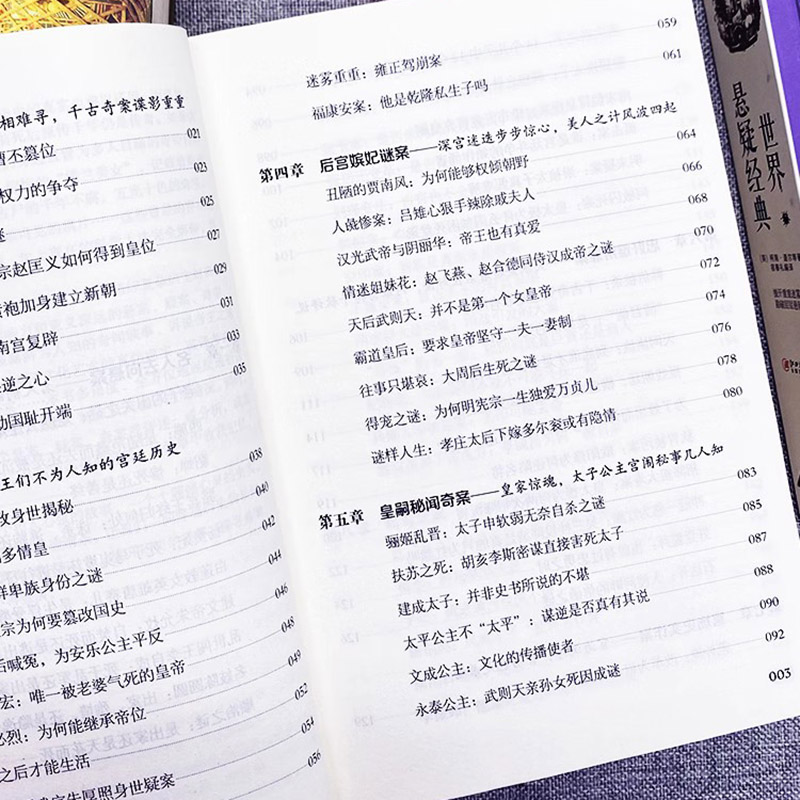 相难寻，千古奇案谍影重重
曹丕篡位
021
权力的争夺
023
谜
025
宗赵匡义如何得到皇位
027
黄袍加身建立新朝
029
南宫复辟
031
逆之心
033
国耻开端
035
王们不为人知的宫廷历史
改身世揭秘
038
多情皇
040
鲜卑族身份之谜
042
宗为何要篡改国史
044
后喊冤，为安乐公主平反
046
宏：唯一被老婆气死的皇帝
048
必烈：为何能继承帝位
049
之后才能生活
052
054
厚照身世疑案
056
迷雾重重：雍正驾崩案
059
福康安案：他是乾隆私生子吗
061
第四章 后宫嫔妃谜案——深宫迷迭步步惊心，美人之计风波四起
丑陋的贾南风：为何能够权倾朝野
064
人彘惨案：吕雉心狠手辣除戚夫人
066
汉光武帝与阴丽华：帝王也有真爱
068
情迷姐妹花：赵飞燕、赵合德同侍汉成帝之谜
070
天后武则天：并不是第一个女皇帝
072
霸道皇后：要求皇帝坚守一夫一妻制
074
往事只堪哀：大周后生死之谜
076
得宠之谜：为何明宪宗一生独爱万贞儿
078
谜样人生：孝庄太后下嫁多尔衮或有隐情
080
第五章 皇嗣秘闻奇案——皇家惊魂，太子公主宫闱秘事几人知
骊姬乱晋：太子申软弱无奈自杀之谜
083
扶苏之死：胡亥李斯密谋直接害死太子
085
建成太子：并非史书所说的不堪
087
太平公主不“太平”：谋逆是否真有其说
088
文成公主：文化的传播使者
090
永泰公主：武则天亲孙女死因成谜
092
003
世界
悬疑经典